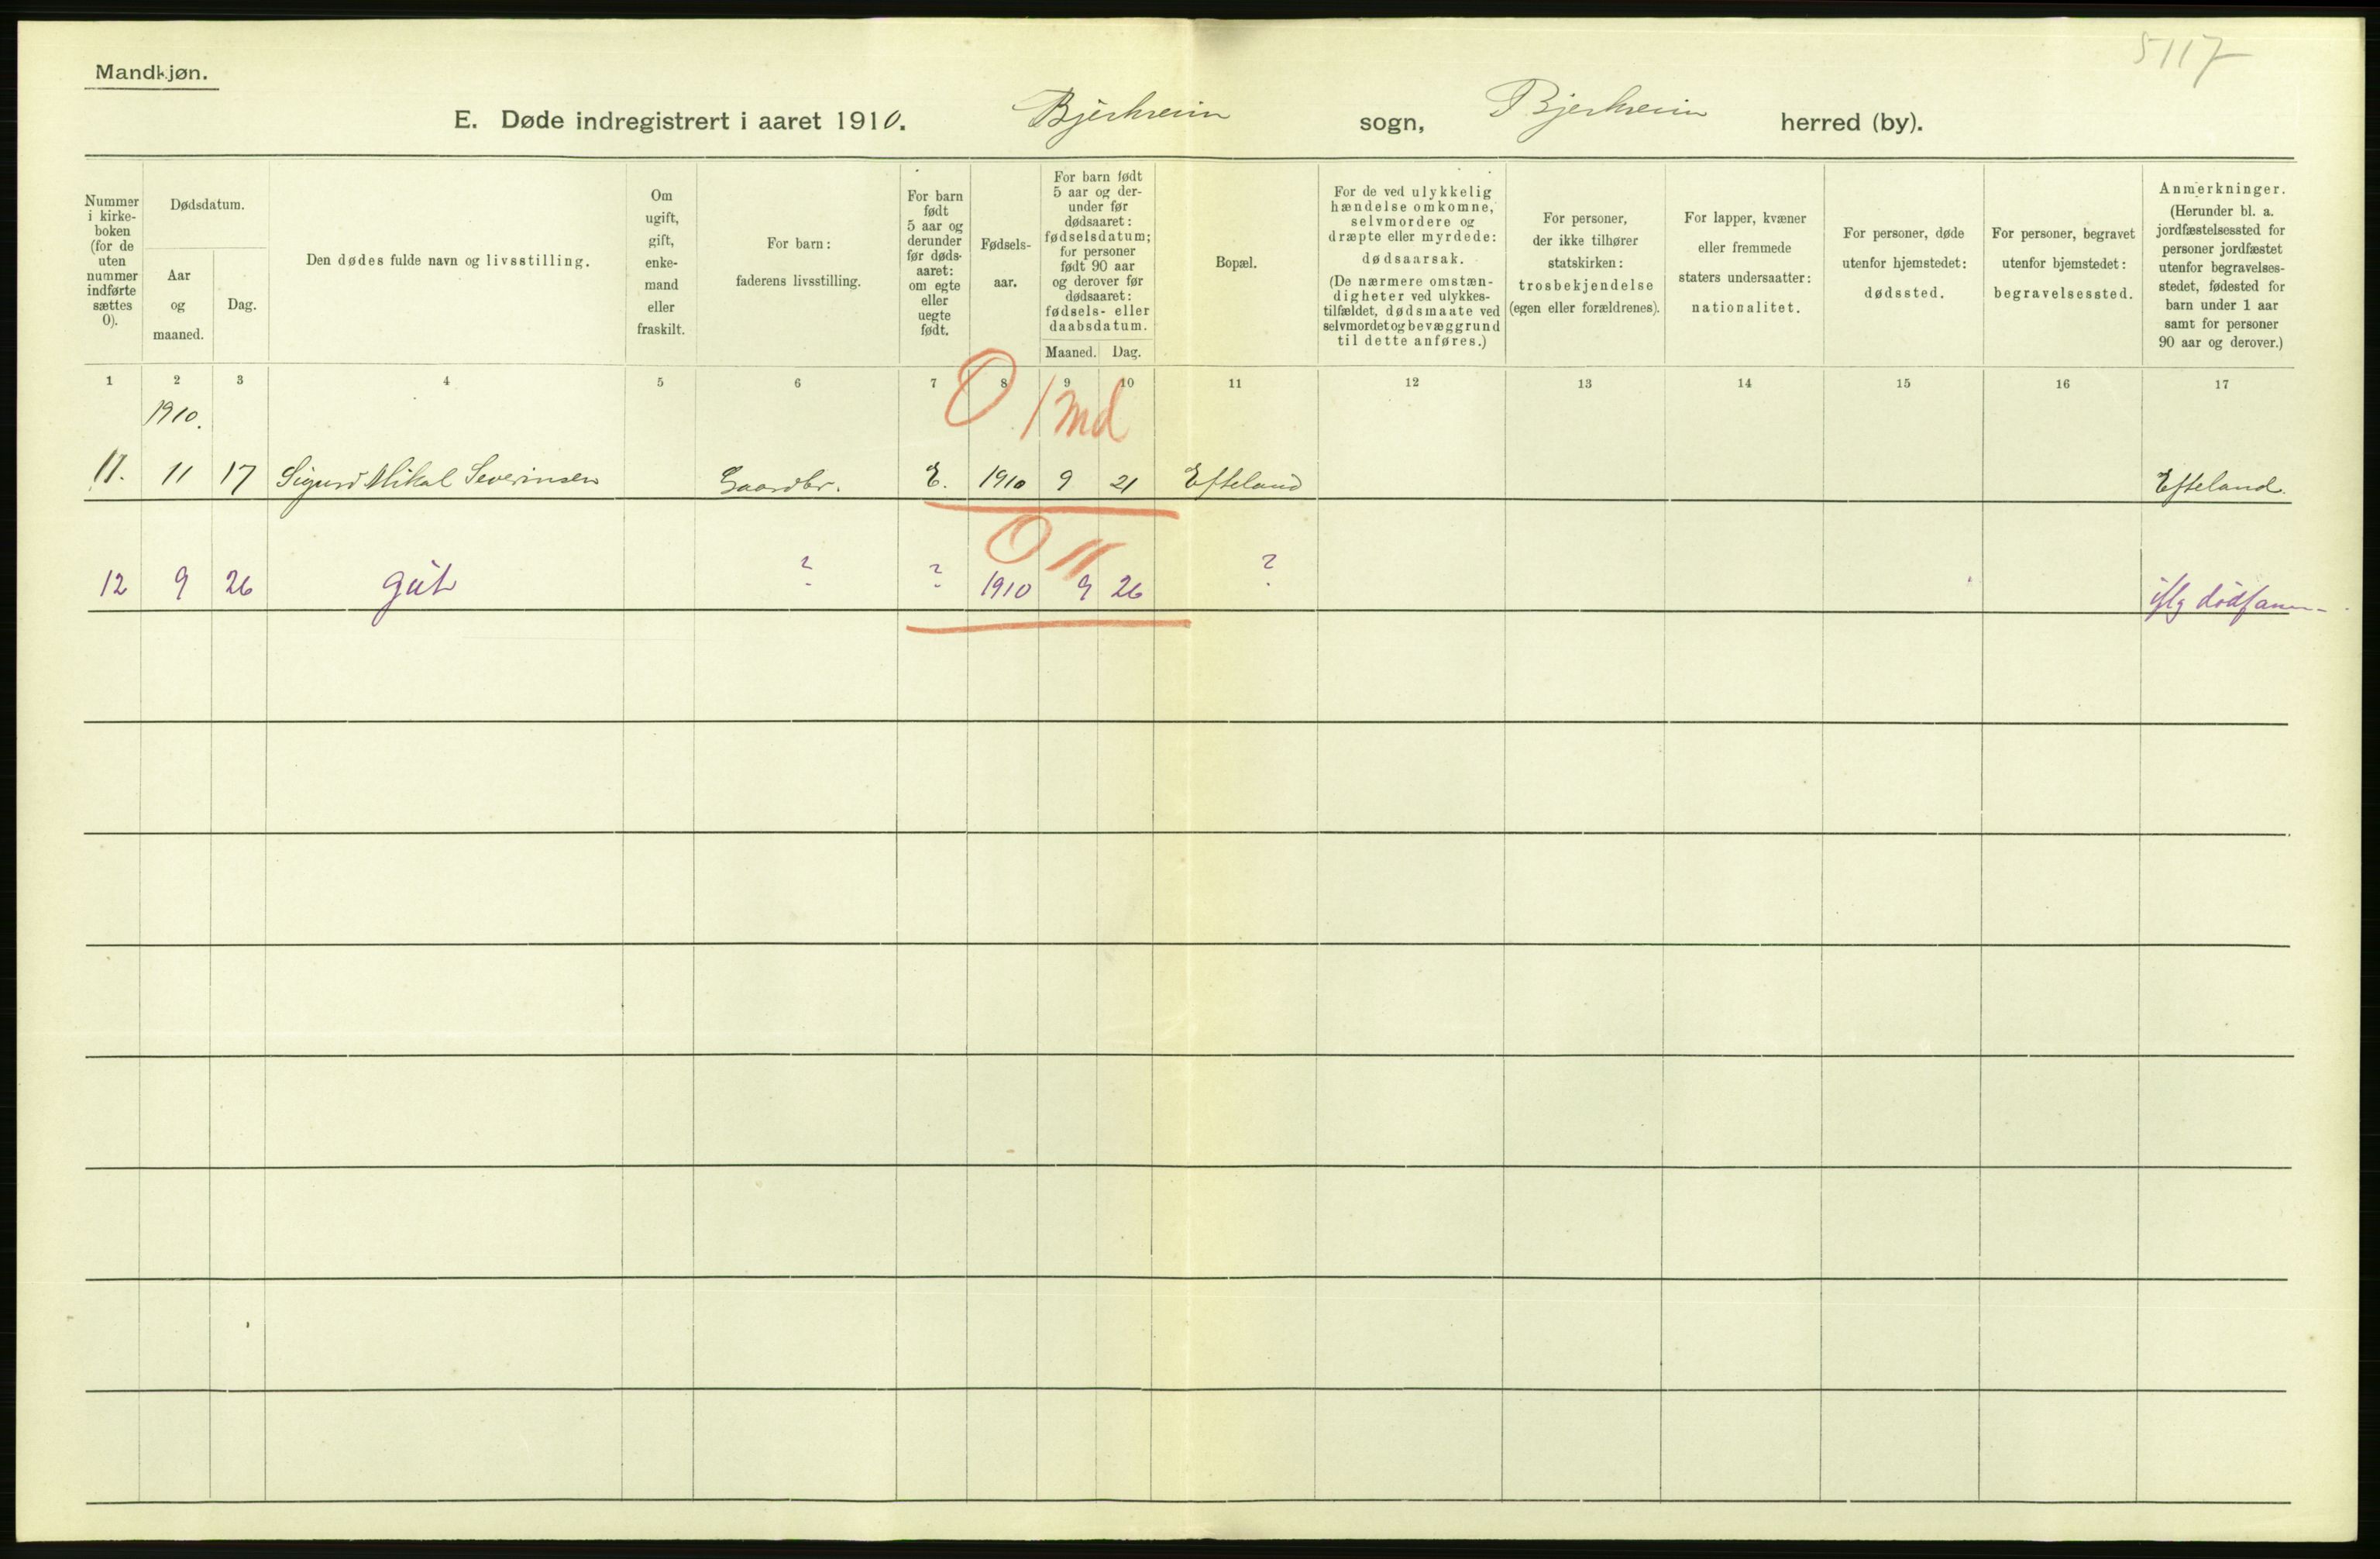 5117
Mandkjøn.
E. Døde indregistrert i aaret 1910. Bjerkreim sogn, Bjerkreim herred (by).
Nummer i kirke-boken (for de uten nummer indførte sættes 0).
Dødsdatum.
Aar og maaned.
Dag.
Den dødes fulde navn og livsstilling.
Om ugift, gift, enke-mand eller fraskilt.
For barn: faderens livsstilling.
For barn født 5 aar og derunder før døds-aaret: om egte eller uegte født.
Fødsels-aar.
For barn født 5 aar og der-under før dødsaaret: fødselsdatum; for personer født 90 aar og derover før dødsaaret: fødsels- eller daabsdatum.
Maaned. Dag.
Bopæl.
For de ved ulykkelig hændelse omkomne, selvmordere og dræpte eller myrdede: dødsaarsak. (De nærmere omstæn-digheter ved ulykkes-tilfældet, dødsmaate ved selvmordet og bevæggrund til dette anføres.)
For personer, der ikke tilhører statskirken: trosbekjendelse (egen eller forældrenes).
For lapper, kvæner eller fremmede staters undersaatter: nationalitet.
For personer, døde utenfor hjemstedet: dødssted.
For personer, begravet utenfor hjemstedet: begravelsessted.
Anmerkninger. (Herunder bl. a. jordfæstelsessted for personer jordfæstet utenfor begravelses-stedet, fødested for barn under 1 aar samt for personer 90 aar og derover.)
1 2 3 4 5 6 7 8 9 10 11 12 13 14 15 16 17
1910.
0 1 md
11. 11 17 Sigurd Mikal Severinsen Gaardbr. E. 1910 9 21 Efteland Efteland.
0 11
12 9 26 gut ? ? 1910 9 26 ? iflg